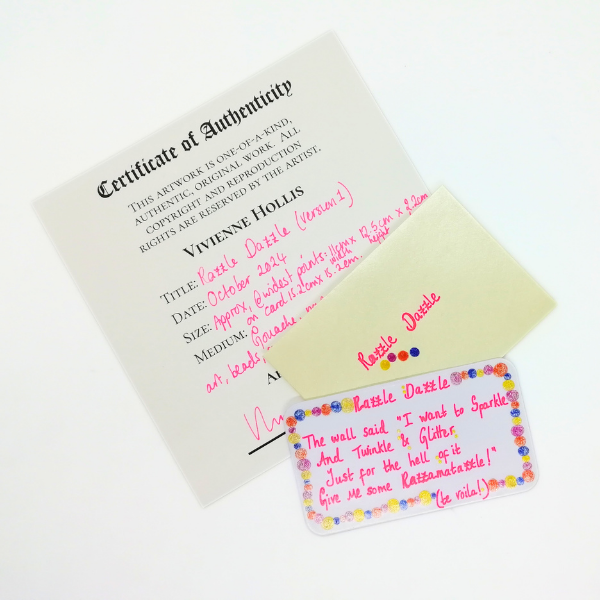 Certificate of Authenticity
THIS ARTWORK IS ONE-OF-A-KIND,
AUTHENTIC, ORIGINAL WORK. ALL
COPYRIGHT AND REPRODUCTION
RIGHTS ARE RESERVED BY THE ARTIST.
VIVIENNE HOLLIS
TITLE: Razzle Dazzle (version 1)
DATE: October 2024
SIZE: Approx, @ widest points: 12.5cm x 9.2cm
on card 15.2cm x 15.2cm
MEDIUM: Gouache,
art, beads,
Razzle Dazzle
Razzle Dazzle
The wall said "I want to Sparkle
And Twinkle & Glitter
Just for the hell of it
Give me some Razzamatazzle!"
(te voila!)